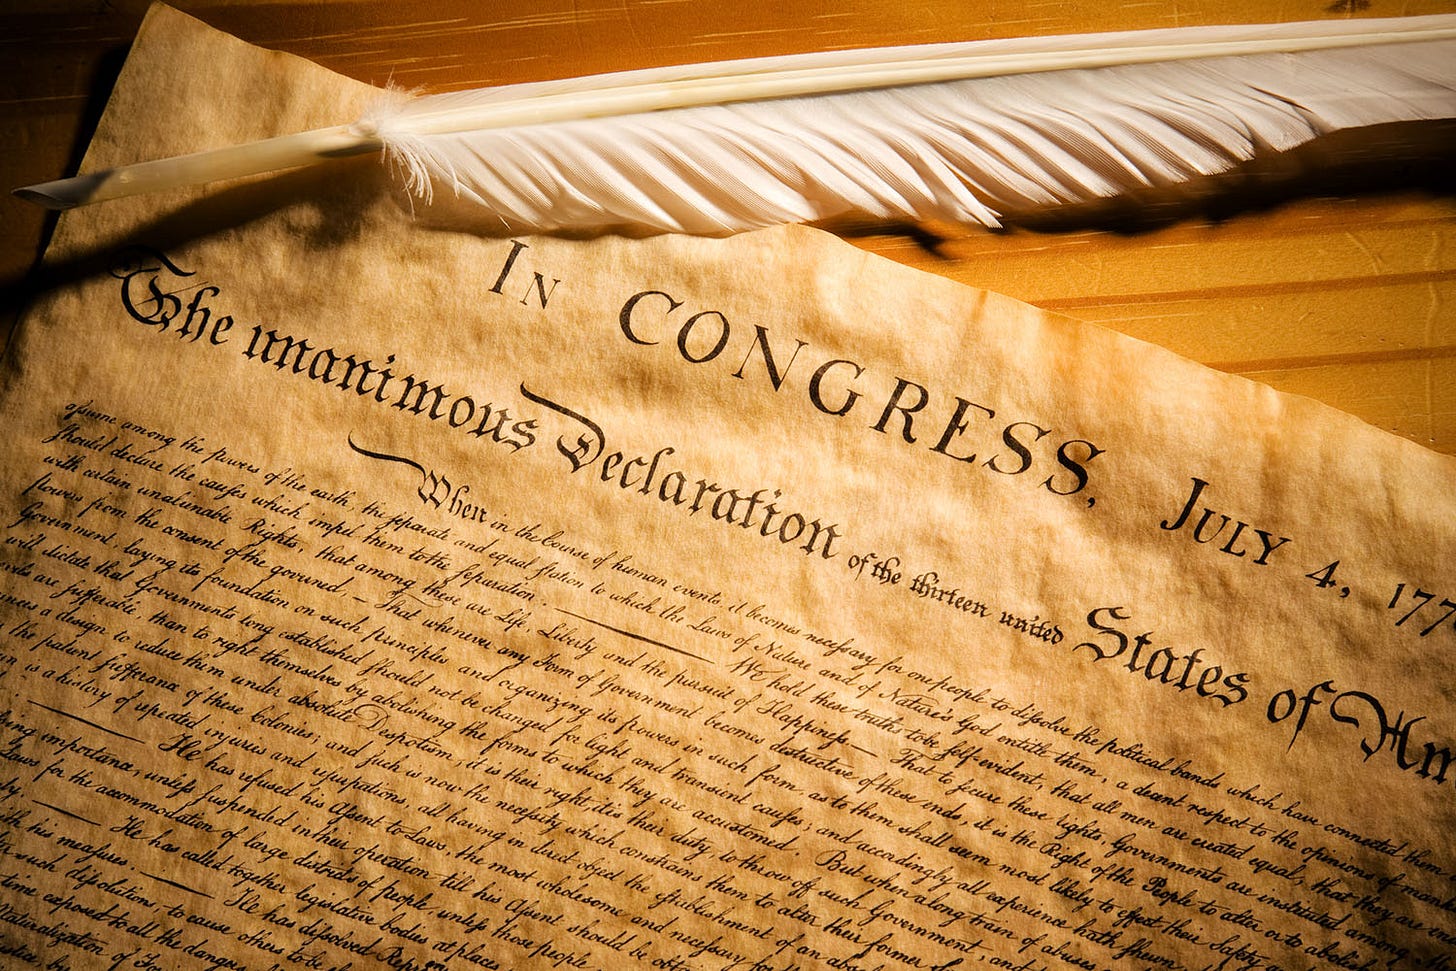 In CONGRESS, July 4, 177
The unanimous Declaration of the thirteen united States of Am
When in the Course of human events, it becomes necessary for one people to dissolve the political bands which have connected them
assume among the powers of the earth, the separate and equal station to which the Laws of Nature and of Nature's God entitle them, a decent respect to the opinions of mankind
should declare the causes which impel them to the separation. — We hold these truths to be self-evident, that all men are created equal, that they are
with certain unalienable Rights, that among these are Life, Liberty and the pursuit of Happiness — That to secure these rights, Governments are instituted among
powers from the consent of the governed, — That whenever any Form of Government becomes destructive of these ends, it is the Right of the People to alter or to abolish
Government, laying its foundation on such principles and organizing its powers in such form, as to them shall seem most likely to effect their Safety
will dictate that Governments long established should not be changed for light and transient causes; and accordingly all experience hath shewn
are sufferable, than to right themselves by abolishing the forms to which they are accustomed. But when a long train of abuses
a design to reduce them under absolute Despotism, it is their right, it is their duty, to throw off such Government
the patient sufferance of these Colonies; and such is now the necessity which constrains them to alter their former
is a history of repeated injuries and usurpations, all having in direct object the establishment of an
He has refused his Assent to Laws, the most wholesome and necessary for
importance, unless suspended in their operation till his Assent should be
Laws for the accommodation of large districts of people, unless those people
He has called together legislative bodies at places
his measures. — He has dissolved
such dissolutions, to cause others to be
time exposed to all the dangers
Naturalization of